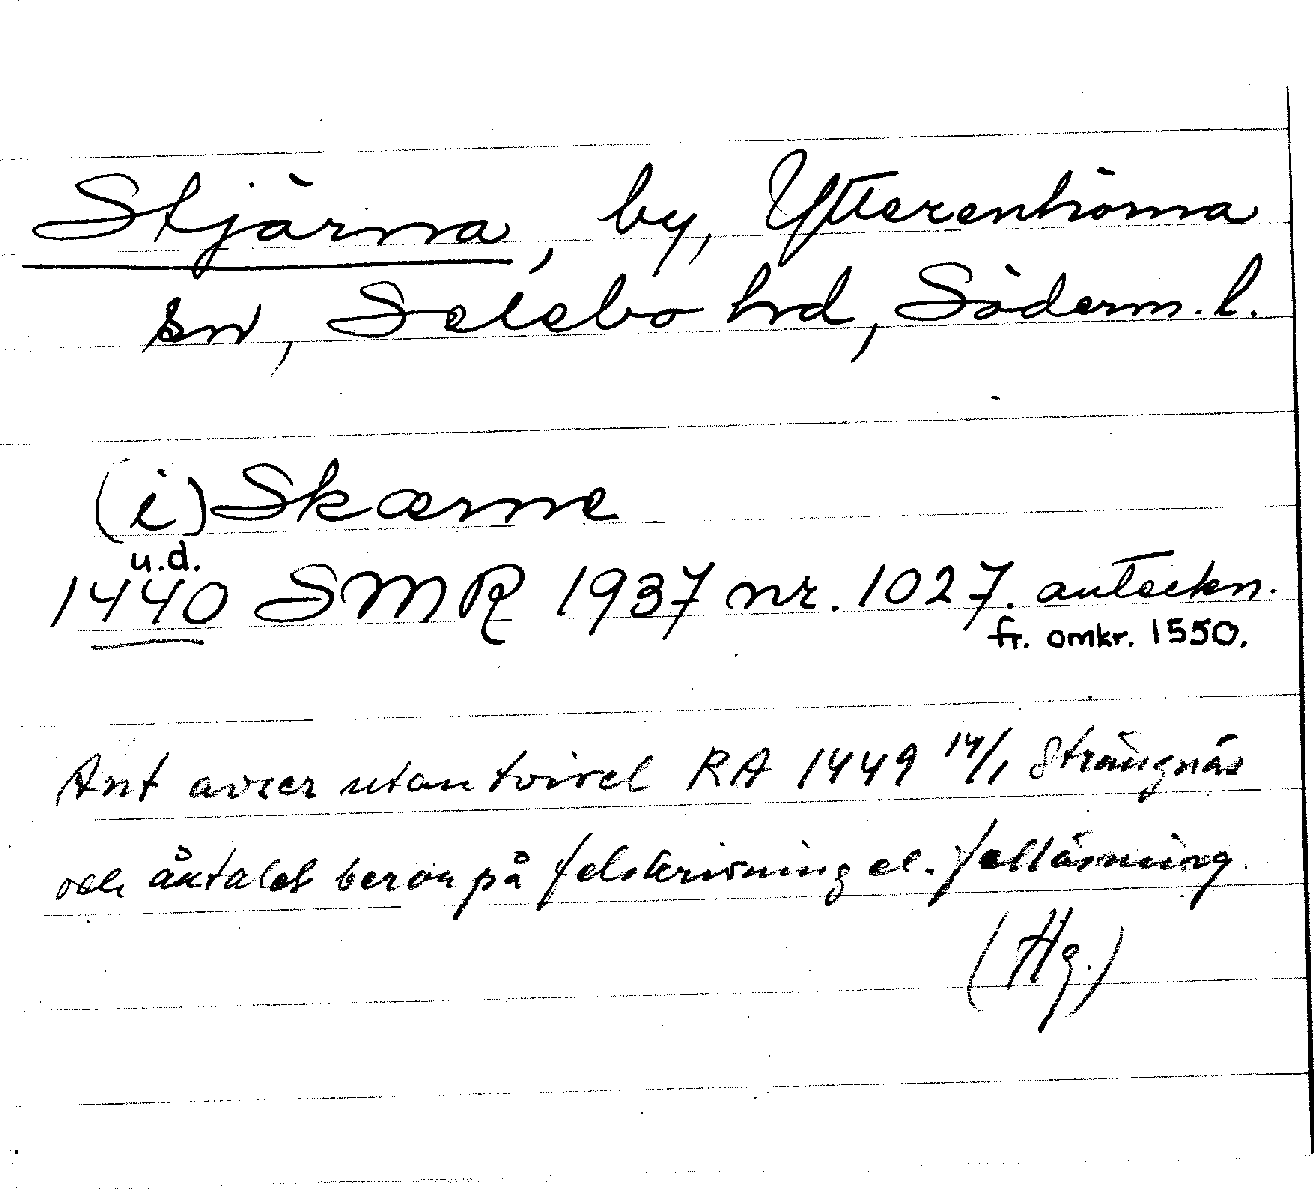 Stjärna, by, Ytterenhörna
sn, Selebo hd, Söderm. l.
(i) Skærne
u.d.
1440 SMR 1937 nr. 1027. anteckn.
fr. omkr. 1550.
Ant avser utan tvivel RA 1449 14/1 Strängnäs
och årtalet beror på felskrivning el. felläsning
(Hg.)